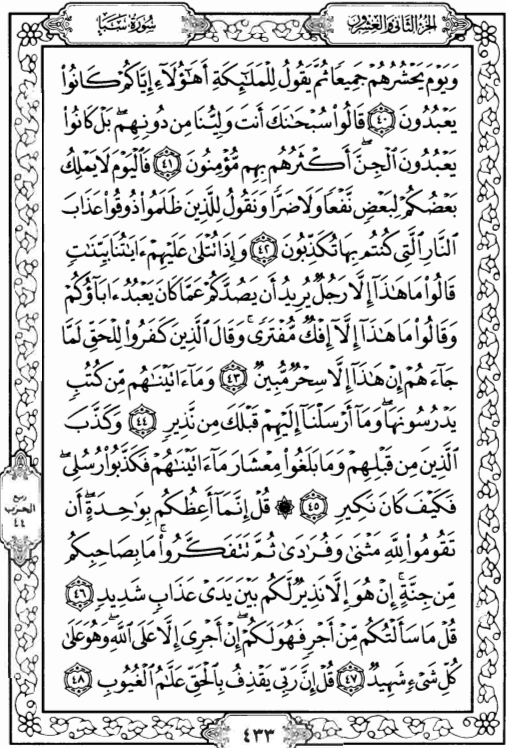 الجزء الثاني والعشرون
سورة سبإ
وَيَوْمَ يَحْشُرُهُمْ جَمِيعًا ثُمَّ يَقُولُ لِلْمَلَٰٓئِكَةِ أَهَٰٓؤُلَآءِ إِيَّاكُمْ كَانُوا۟
يَعْبُدُونَ ﴿٤٠﴾ قَالُوا۟ سُبْحَٰنَكَ أَنتَ وَلِيُّنَا مِن دُونِهِم ۖ بَلْ كَانُوا۟
يَعْبُدُونَ ٱلْجِنَّ ۖ أَكْثَرُهُم بِهِم مُّؤْمِنُونَ ﴿٤١﴾ فَٱلْيَوْمَ لَا يَمْلِكُ
بَعْضُكُمْ لِبَعْضٍ نَّفْعًا وَلَا ضَرًّا وَنَقُولُ لِلَّذِينَ ظَلَمُوا۟ ذُوقُوا۟ عَذَابَ
ٱلنَّارِ ٱلَّتِى كُنتُم بِهَا تُكَذِّبُونَ ﴿٤٢﴾ وَإِذَا تُتْلَىٰ عَلَيْهِمْ ءَايَٰتُنَا بَيِّنَٰتٍ
قَالُوا۟ مَا هَٰذَآ إِلَّا رَجُلٌ يُرِيدُ أَن يَصُدَّكُمْ عَمَّا كَانَ يَعْبُدُ ءَابَآؤُكُمْ
وَقَالُوا۟ مَا هَٰذَآ إِلَّآ إِفْكٌ مُّفْتَرًى ۚ وَقَالَ ٱلَّذِينَ كَفَرُوا۟ لِلْحَقِّ لَمَّا
جَآءَهُمْ إِنْ هَٰذَآ إِلَّا سِحْرٌ مُّبِينٌ ﴿٤٣﴾ وَمَآ ءَاتَيْنَٰهُم مِّن كُتُبٍ
يَدْرُسُونَهَا ۖ وَمَآ أَرْسَلْنَآ إِلَيْهِمْ قَبْلَكَ مِن نَّذِيرٍ ﴿٤٤﴾ وَكَذَّبَ
ٱلَّذِينَ مِن قَبْلِهِمْ وَمَا بَلَغُوا۟ مِعْشَارَ مَآ ءَاتَيْنَٰهُمْ فَكَذَّبُوا۟ رُسُلِى ۖ
فَكَيْفَ كَانَ نَكِيرِ ﴿٤٥﴾ ۞ قُلْ إِنَّمَآ أَعِظُكُم بِوَٰحِدَةٍ ۖ أَن
تَقُومُوا۟ لِلَّهِ مَثْنَىٰ وَفُرَٰدَىٰ ثُمَّ تَتَفَكَّرُوا۟ ۚ مَا بِصَاحِبِكُم
مِّن جِنَّةٍ ۚ إِنْ هُوَ إِلَّا نَذِيرٌ لَّكُم بَيْنَ يَدَىْ عَذَابٍ شَدِيدٍ ﴿٤٦﴾
قُلْ مَا سَأَلْتُكُم مِّنْ أَجْرٍ فَهُوَ لَكُمْ ۖ إِنْ أَجْرِىَ إِلَّا عَلَى ٱللَّهِ ۖ وَهُوَ عَلَىٰ
كُلِّ شَىْءٍ شَهِيدٌ ﴿٤٧﴾ قُلْ إِنَّ رَبِّى يَقْذِفُ بِٱلْحَقِّ عَلَّٰمُ ٱلْغُيُوبِ ﴿٤٨﴾
ربع
الحزب
٤٤
٤٣٣